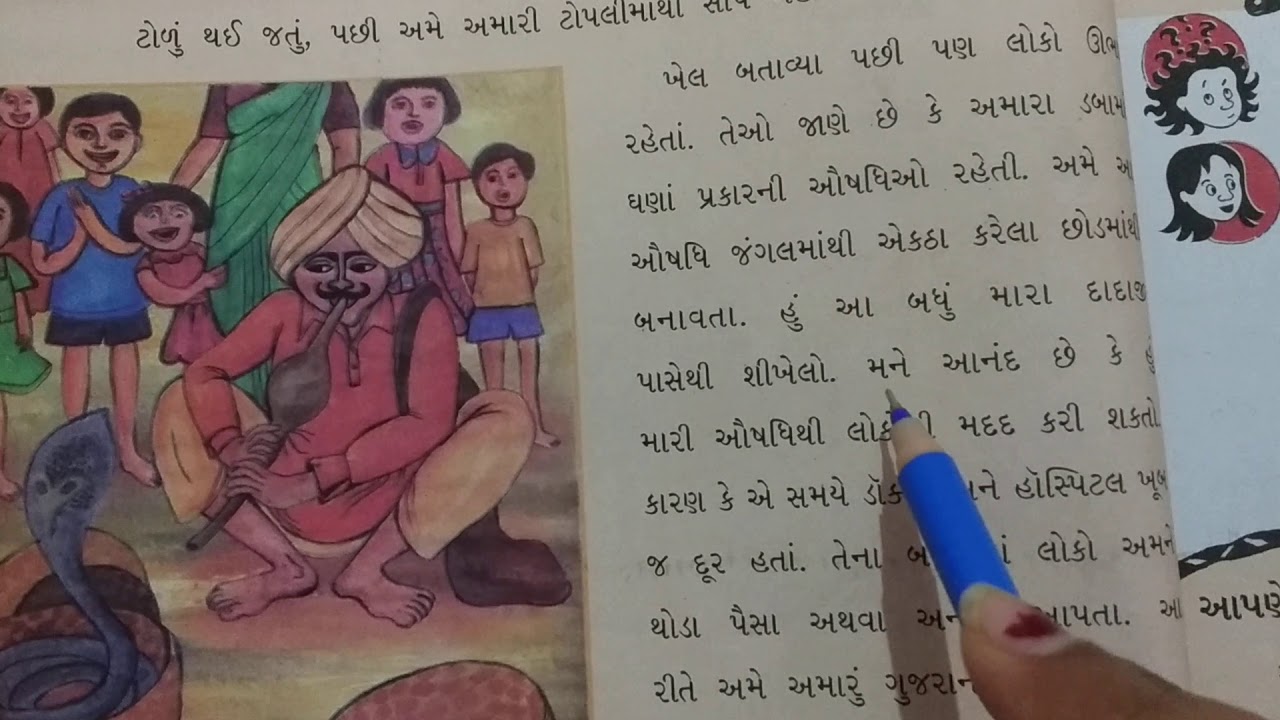 ટોળું થઈ જતું, પછી અમે અમારી ટોપલીમાંથી
ખેલ બતાવ્યા પછી પણ લોકો
રહેતાં. તેઓ જાણે છે કે અમારા
ઘણાં પ્રકારની ઔષધિઓ રહેતી. અમે
ઔષધિ જંગલમાંથી એકઠા કરેલા છોડમાંથી
બનાવતા. હું આ બધું મારા દાદાજી
પાસેથી શીખેલો. મને આનંદ છે કે હું
મારી ઔષધિથી મદદ કરી શકતો
કારણ કે એ સમયે હૉસ્પિટલ ખૂબ
જ દૂર હતાં. તેના લોકો અમને
થોડા પૈસા અથવા આપતા.
રીતે અમે અમારું
આપણે